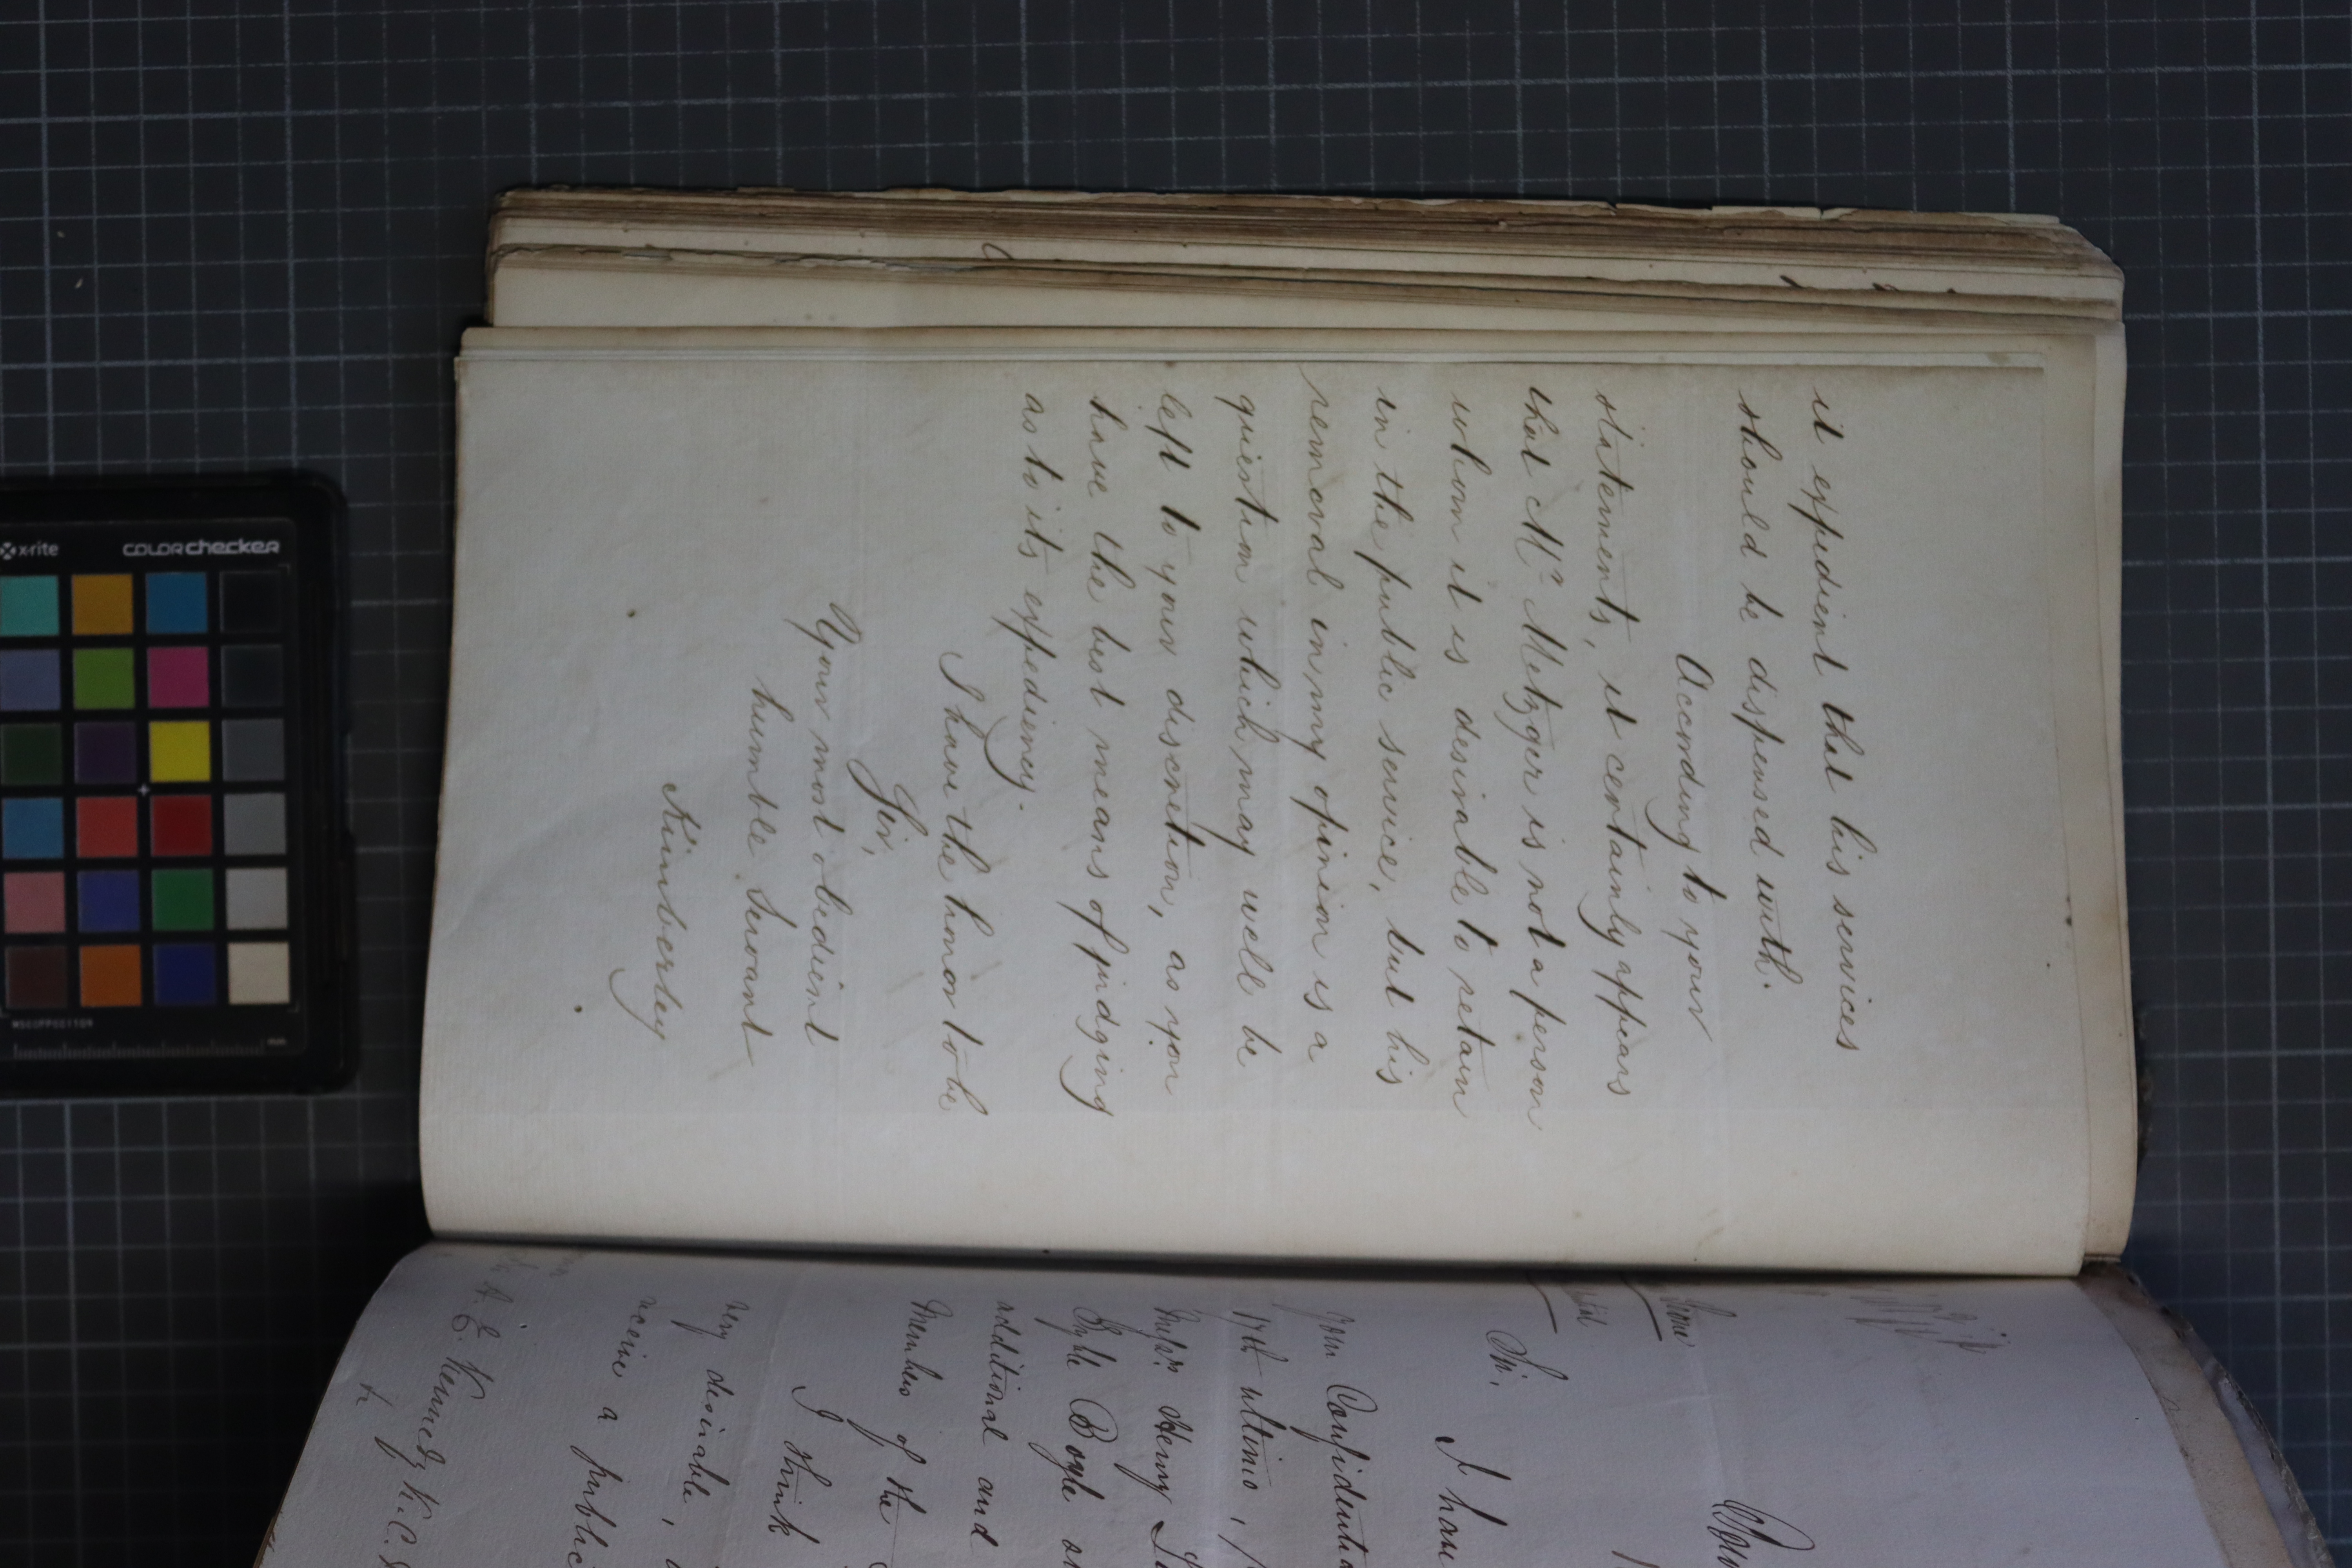 it expedient that his services
should be dispensed with.
According to your
statements, it certainly appears
that Mr. Metzger is not a person
whom it is desirable to retain
in the public service, but his
removal in my opinion is a
question which may well be
left to your discretion, as you
have the best means of judging
as to its expediency.
I have the honor to be
Sir,
Your most obedient
humble Servant
Kimberley
Sir,
I have
your Confidential
17th ultimo,
Henry
Boyle
additional and
Members of the
I think
very desirable,
receive a public
A. E. Kennedy K.C.
x-rite
colorchecker
mm